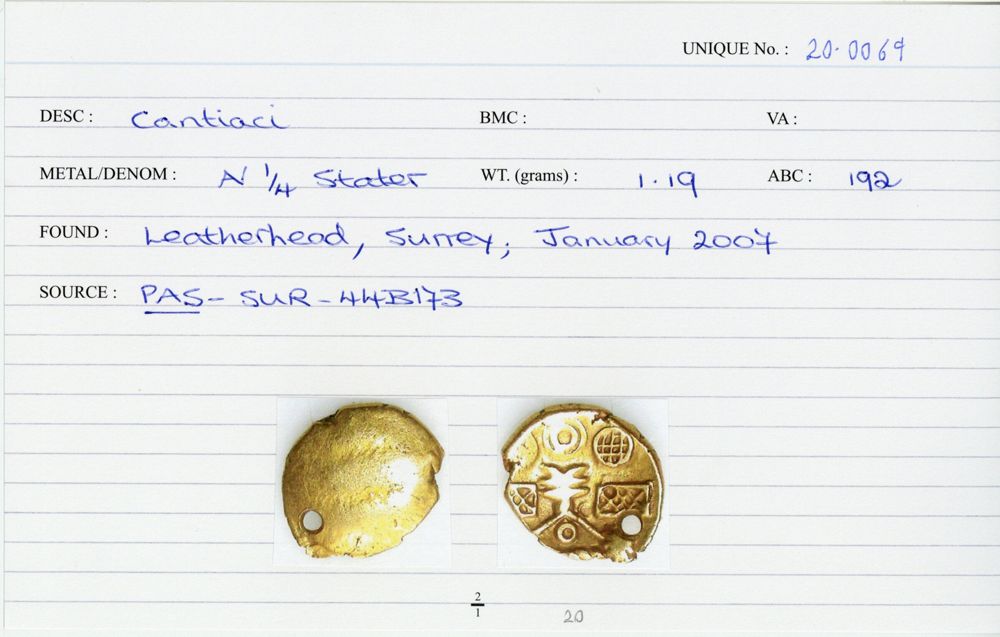 UNIQUE No. : 20.0069
DESC : Cantiaci BMC : VA :
METAL/DENOM : N 1/4 Stater WT. (grams) : 1.19 ABC : 192
FOUND : Leatherhead, Surrey; January 2007
SOURCE : PAS- SUR-44B173
2/1 20